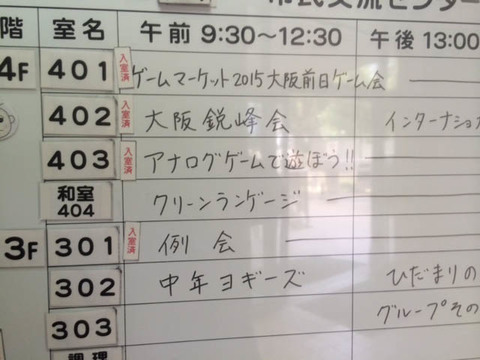 市民交流センター
階 室名 午前 9:30～12:30 午後 13:00
4F 401 入室済 ゲームマーケット2015大阪前日ゲーム会
402 入室済 大阪鋭峰会 インターナショ
403 入室済 アナログゲームで遊ぼう!!
和室 404 クリーンランゲージ
3F 301 入室済 例会
302 中年ヨギーズ ひだまりの
グループその
303
調理